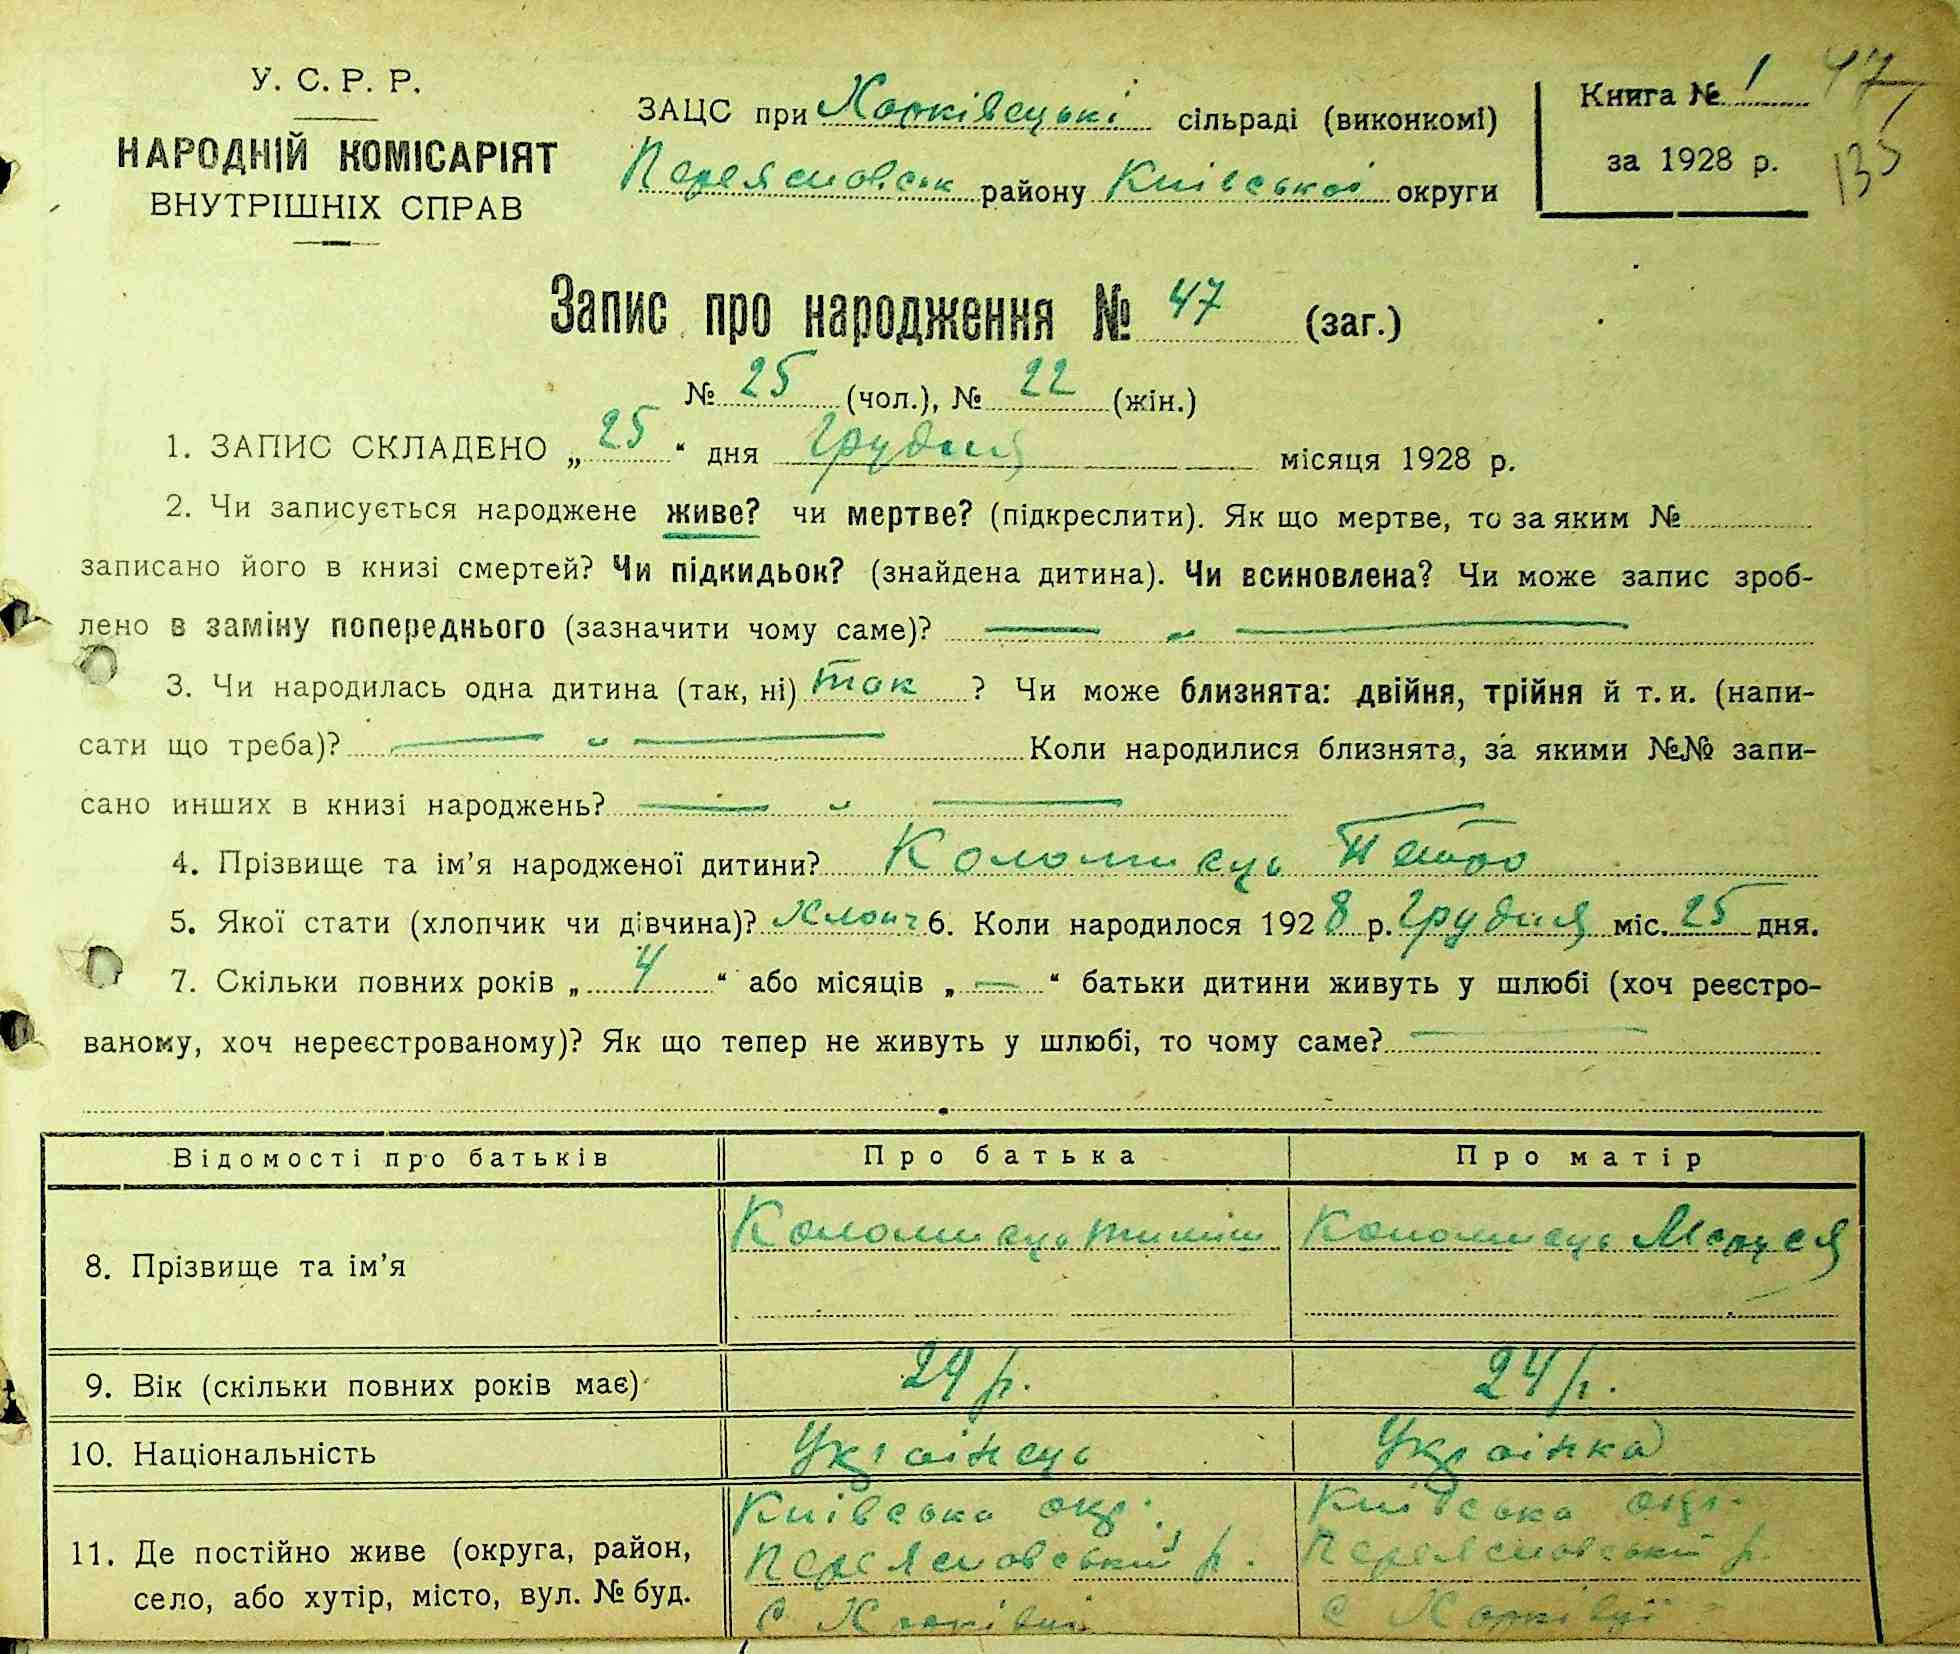 У. С. Р. Р.
НАРОДНІЙ КОМІСАРІЯТ
ВНУТРІШНІХ СПРАВ
ЗАЦС при Харківецькі сільраді (виконкомі)
Переяславськ району Київської округи
Книга № 1
за 1928 р.
47
135
Запис про народження № 47 (заг.)
№ 25 (чол.), № 22 (жін.)
1. ЗАПИС СКЛАДЕНО „ 25 “ дня Грудня місяця 1928 р.
2. Чи записується народжене живе? чи мертве? (підкреслити). Як що мертве, то за яким №
записано його в книзі смертей? Чи підкидьок? (знайдена дитина). Чи всиновлена? Чи може запис зроб-
лено в заміну попереднього (зазначити чому саме)? — „ —
3. Чи народилась одна дитина (так, ні) так ? Чи може близнята: двійня, трійня й т. и. (напи-
сати що треба)? — „ — Коли народилися близнята, за якими №№ запи-
сано инших в книзі народжень? — „ —
4. Прізвище та ім’я народженої дитини? Коломиєць Петро
5. Якої стати (хлопчик чи дівчина)? Хлопч 6. Коли народилося 1928 р. Грудня міс. 25 дня.
7. Скільки повних років „ 4 “ або місяців „ — “ батьки дитини живуть у шлюбі (хоч реєстро-
ваному, хоч нереєстрованому)? Як що тепер не живуть у шлюбі, то чому саме? —
Відомості про батьків Про батька Про матір
8. Прізвище та ім’я Коломиєць Тиміш Коломиєць Маруся
9. Вік (скільки повних років має) 29 р. 24 р.
10. Національність Українець Українка
11. Де постійно живе (округа, район,
село, або хутір, місто, вул. № буд.
Київська окр.
Переяславський р.
с Харківці
Київська окр.
Переяславський р.
с Харківці